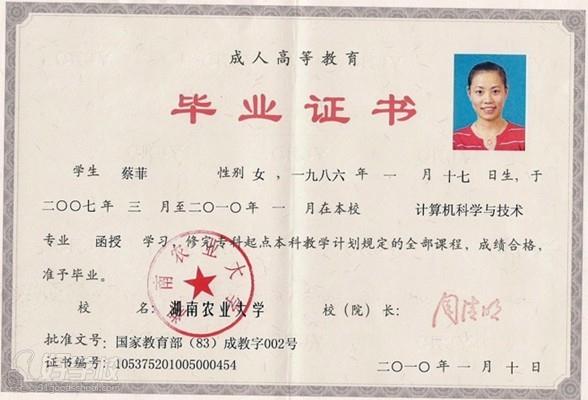 成人高等教育
毕业证书
学生 蔡菲 性别 女，一九八六年 一 月 十七 日生，于
二〇〇七年 三 月至二〇一〇年 一 月在本校 计算机科学与技术
专业 函授 学习，修完专科起点本科教学计划规定的全部课程，成绩合格，
准予毕业。
湖南农业大学
校 名：湖南农业大学 校（院）长：周清明
批准文号：国家教育部（83）成教字002号
证书编号：105375201005000454
二〇一〇年 一 月 十 日